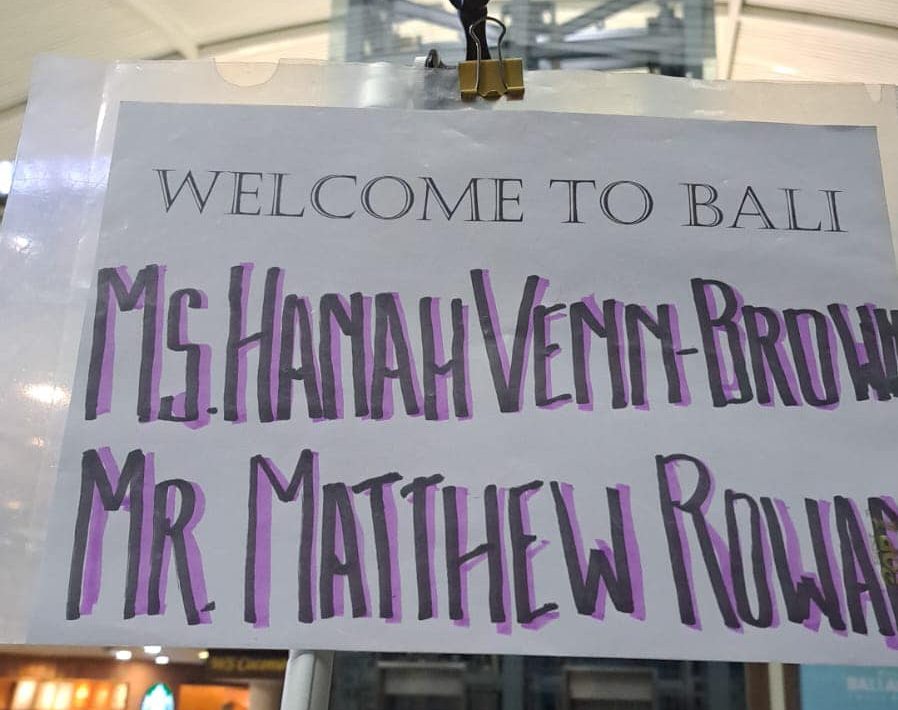 WELCOME TO BALI
MS. HANAH VENN-BROWN
MR. MATTHEW ROWA
BALI A